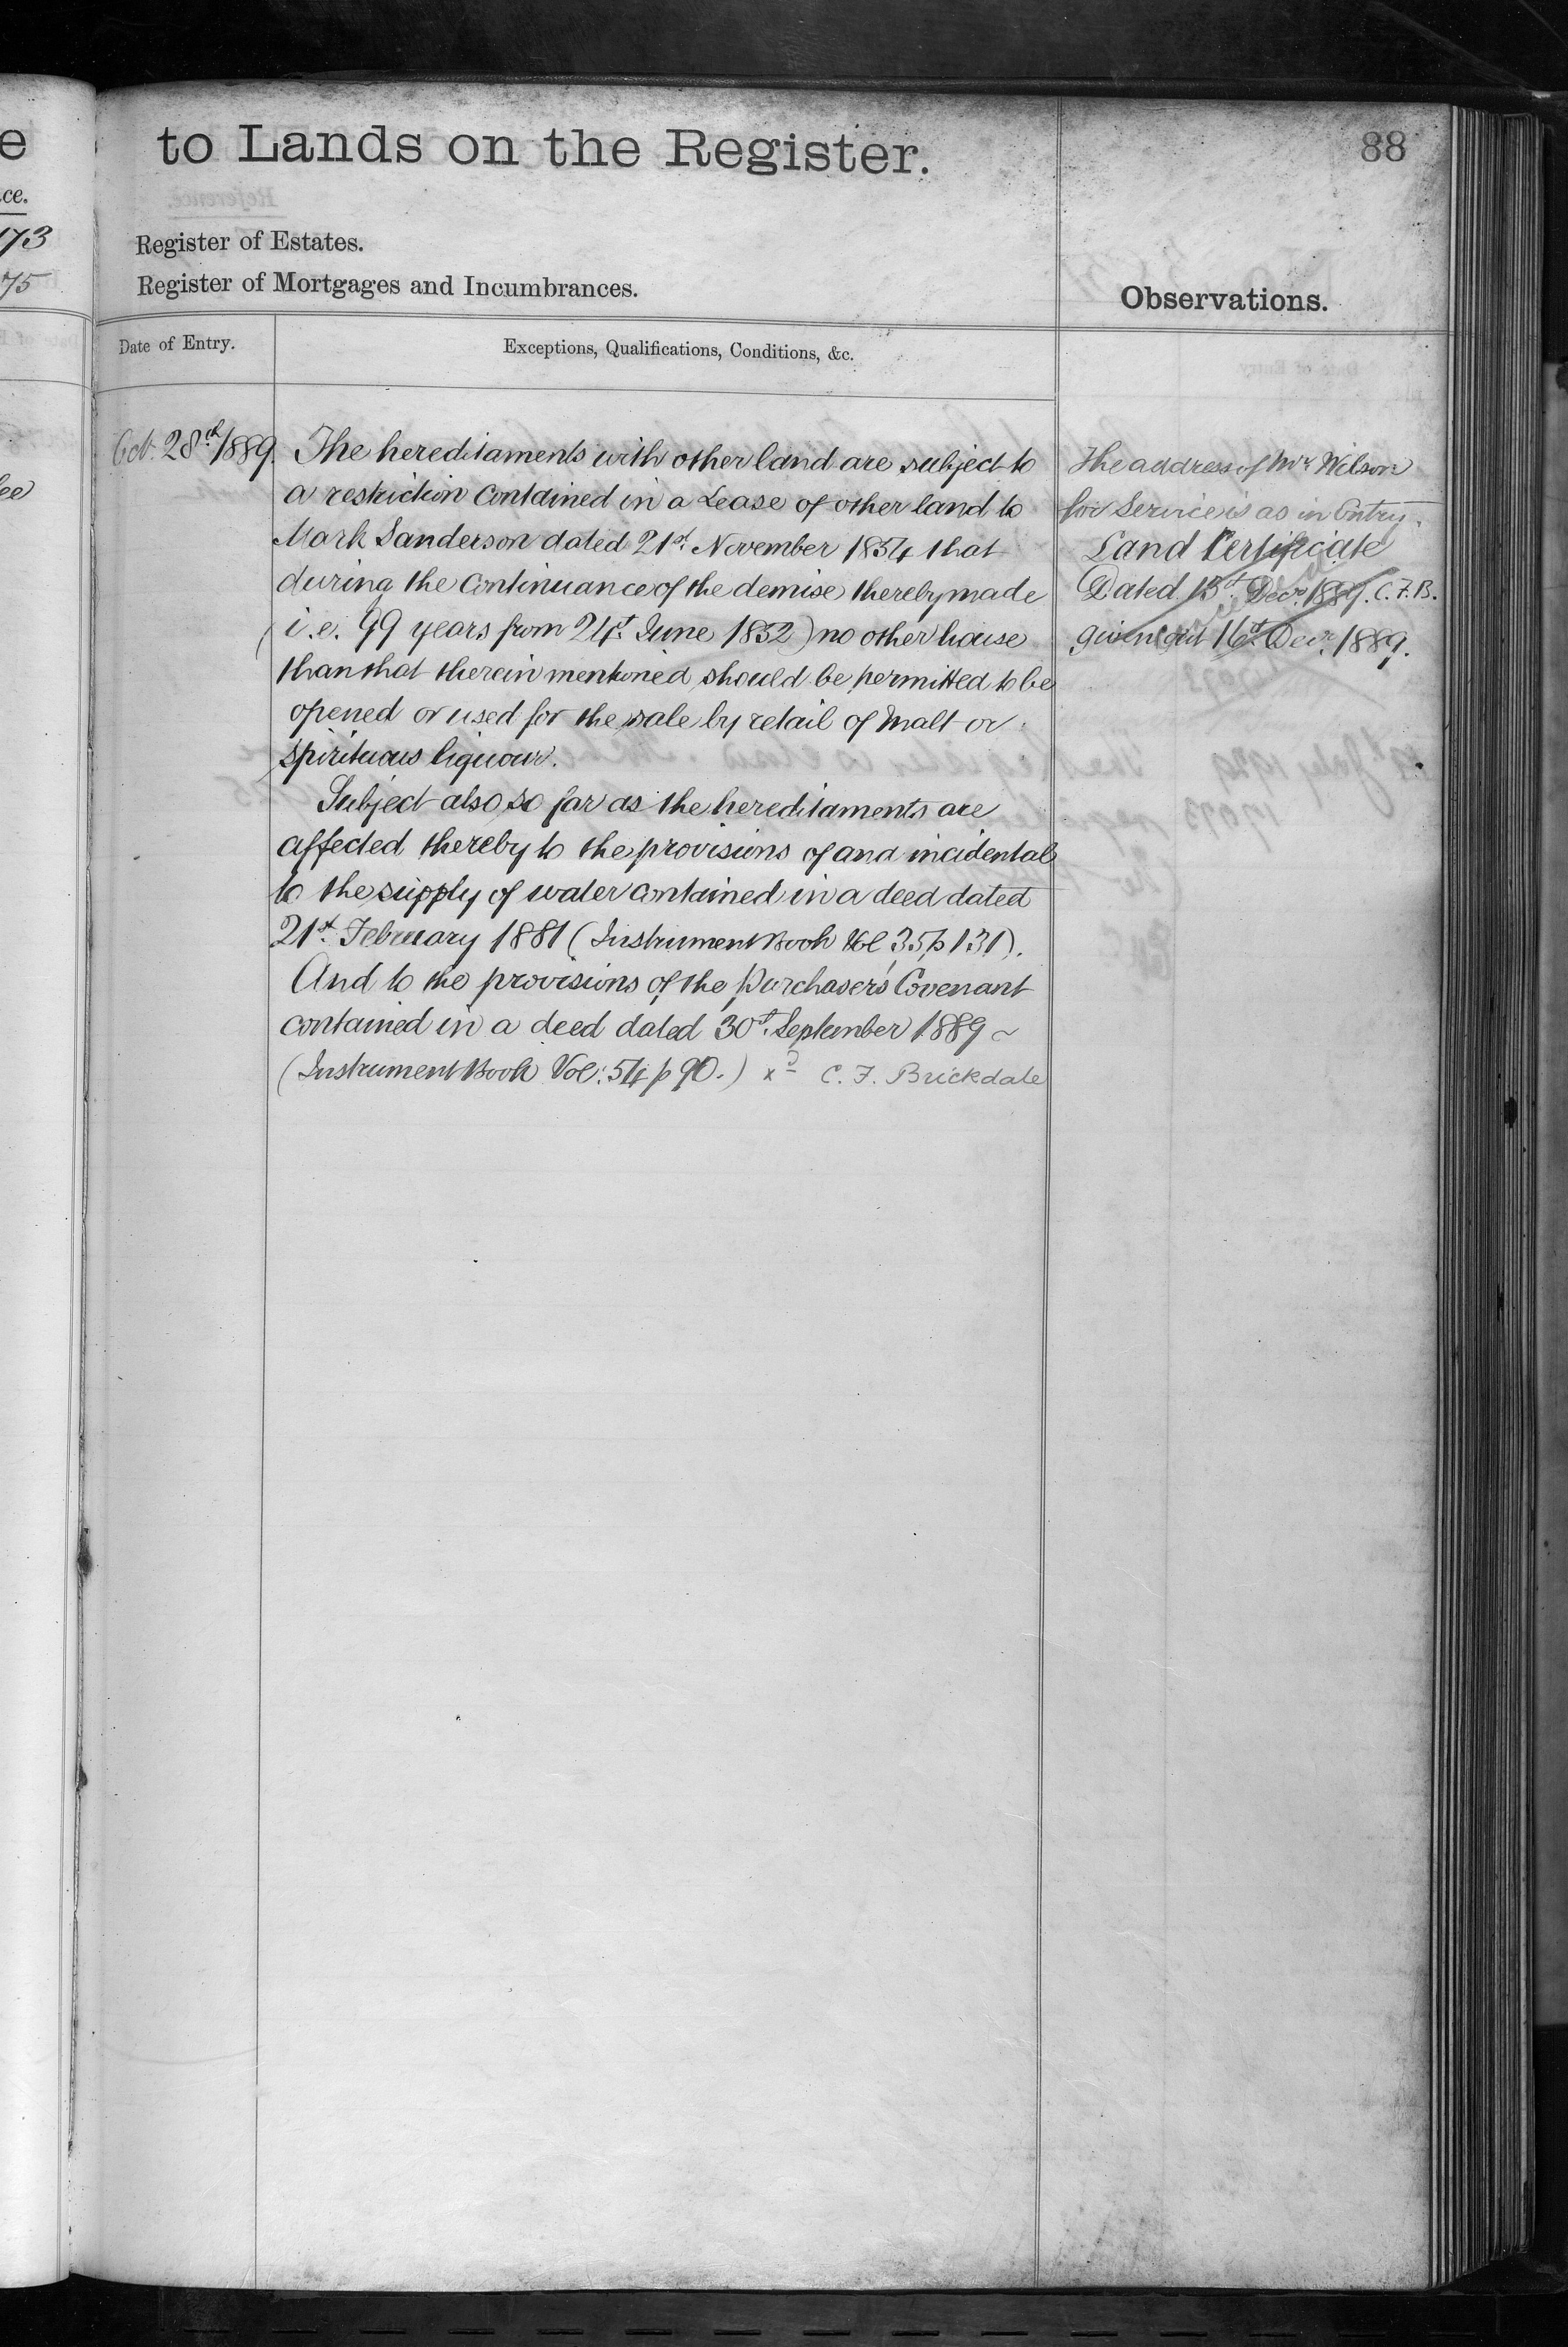 e
to Lands on the Register.
88
ce.
173
75
Register of Estates.
Register of Mortgages and Incumbrances.
Observations.
Date of Entry.
Exceptions, Qualifications, Conditions, &c.
Oct. 28th/1889.
The hereditaments with other land are subject to
a restriction contained in a Lease of other land to
Mark Sanderson dated 21st. November 1834 that
during the continuance of the demise thereby made
(i.e. 99 years from 24th. June 1832) no other house
than that therein mentioned should be permitted to be
opened or used for the sale by retail of Malt or
spirituous liquour.
Subject also so far as the hereditaments are
affected thereby to the provisions of and incidental
to the supply of water contained in a deed dated
21st. February 1881 (Instrument Book Vol 35 p 131).
And to the provisions of the Purchaser's Covenant
contained in a deed dated 30th. September 1889 ~
(Instrument Book Vol: 54 p 90.) xd C. F. Brickdale
The address of Mr Wilson
for Service is as in Entry.
Land Certificate
Dated 13th. Decr. 1889. C.F.B.
given out 16th. Decr. 1889.
lee